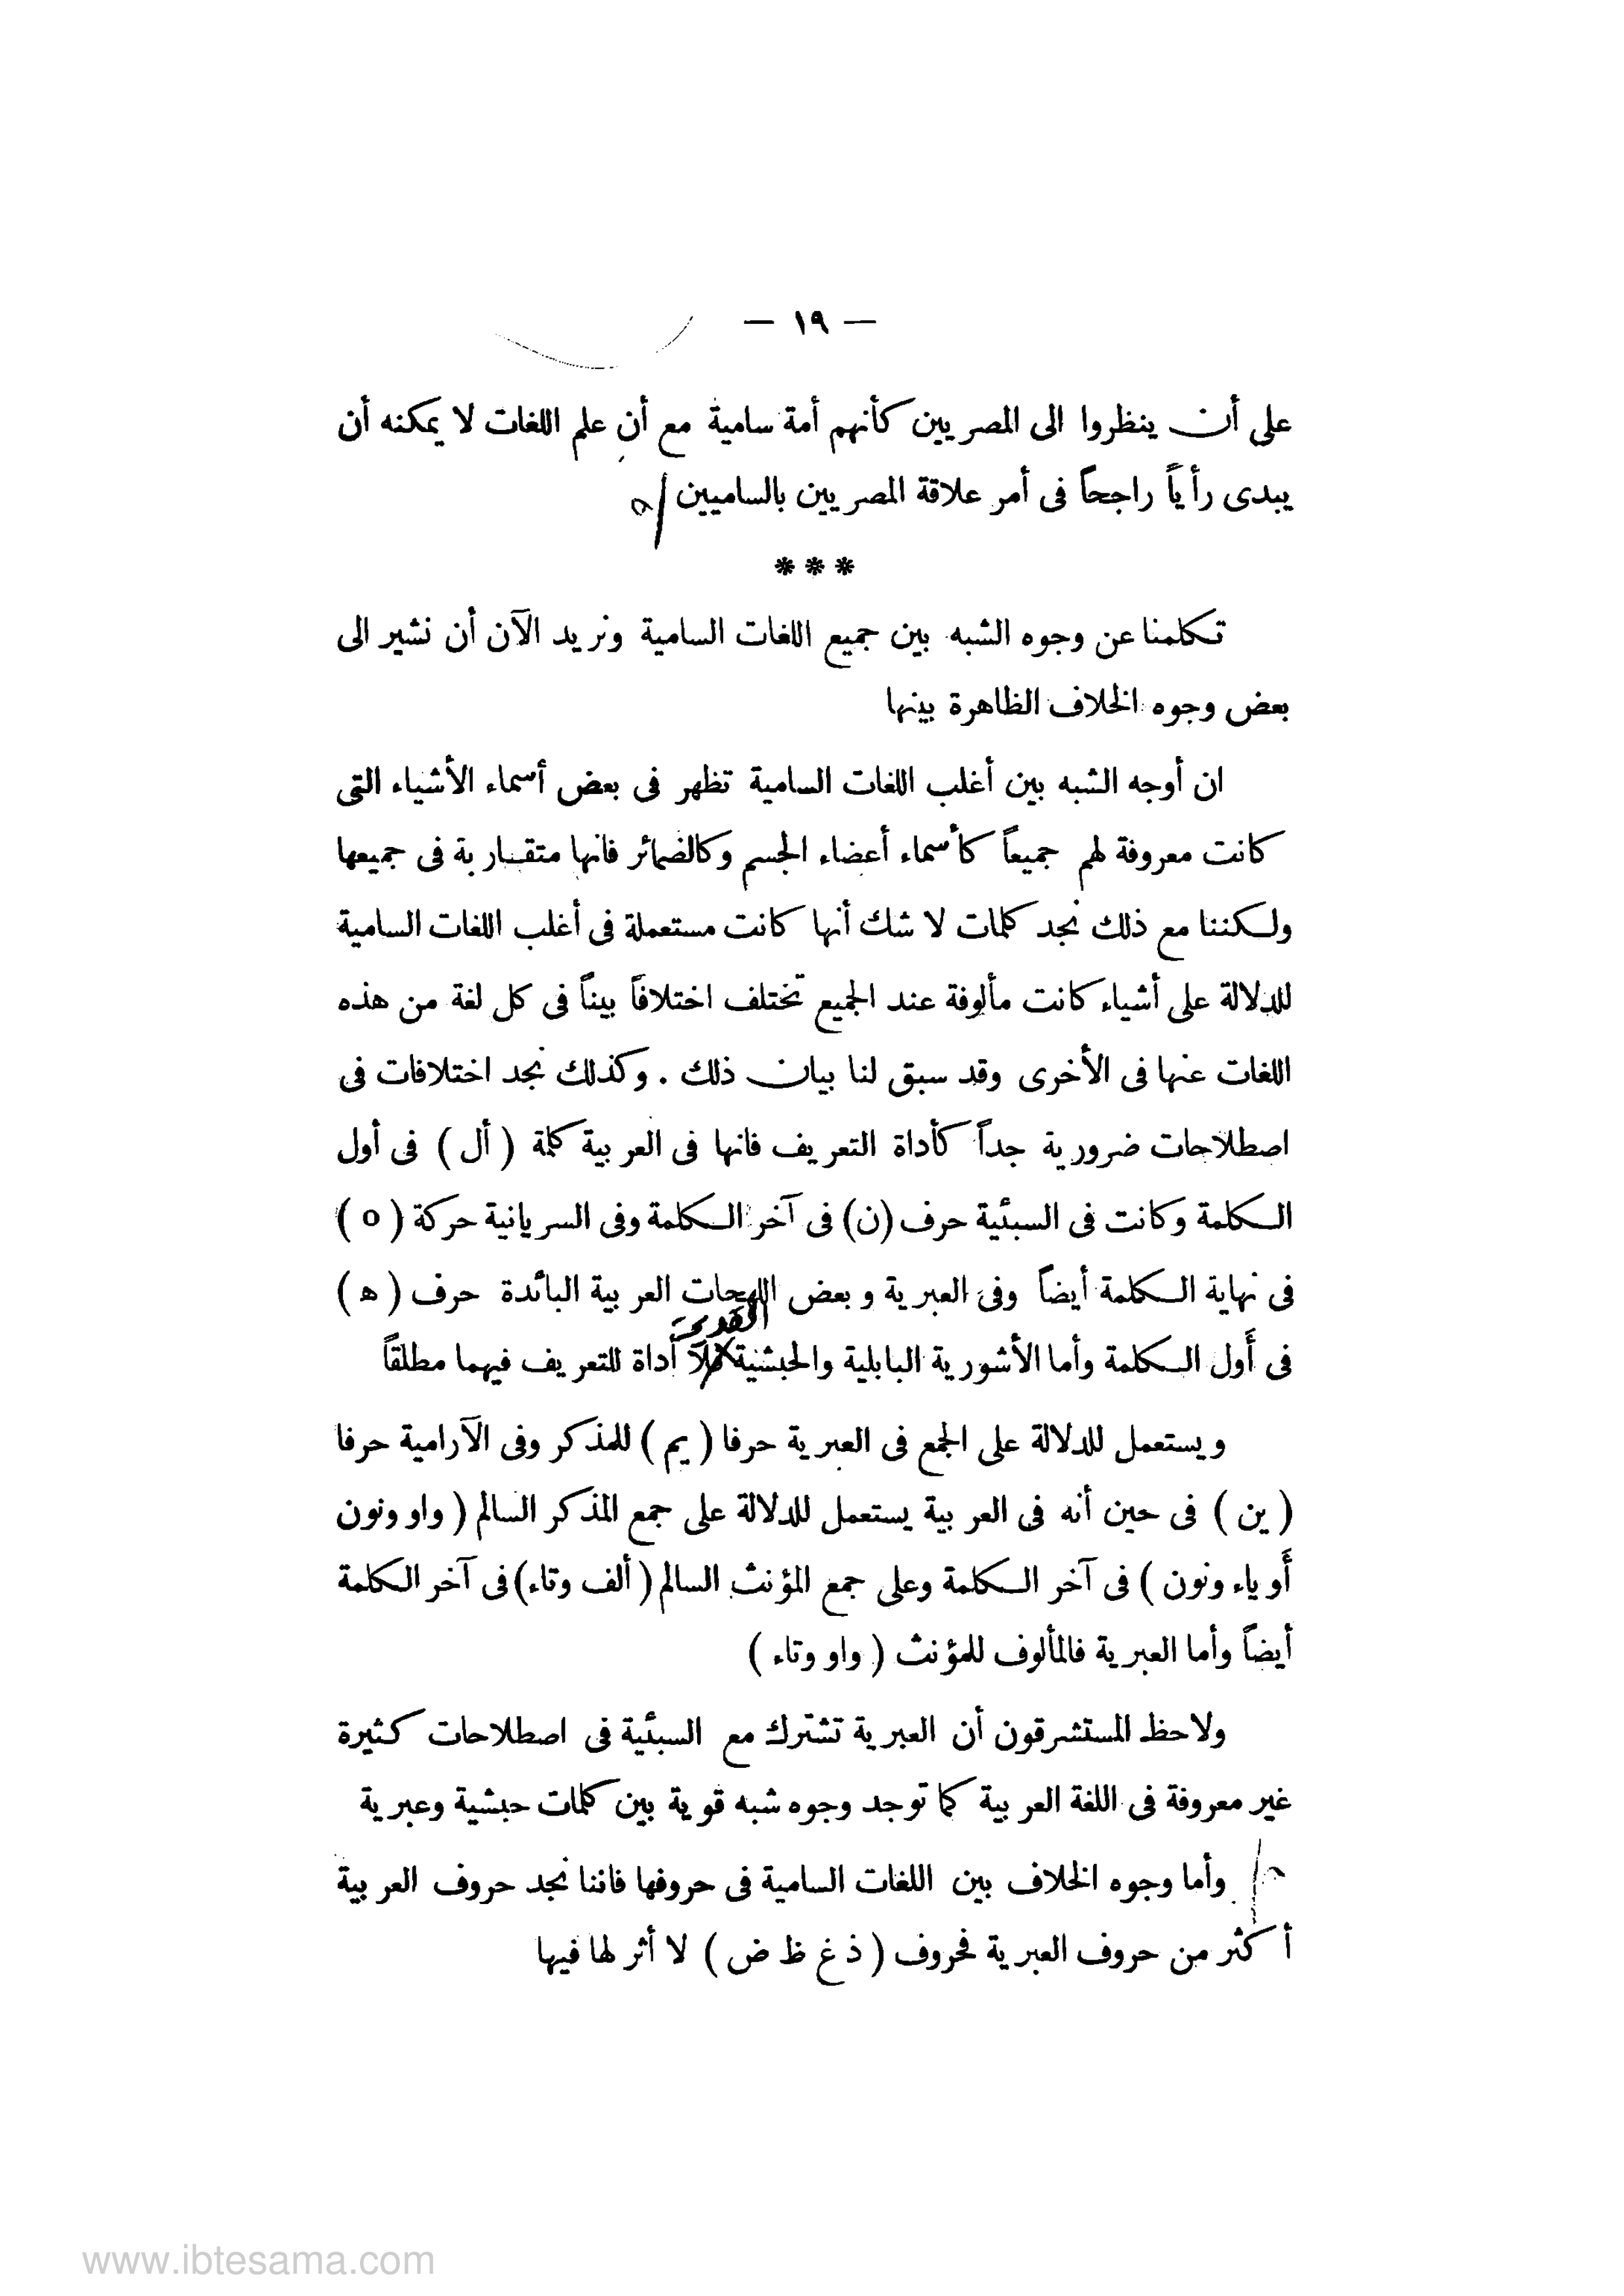 — ١٩ —
على أن ينظروا الى المصريين كأنهم أمة سامية مع أن علم اللغات لا يمكنه أن
يبدى رأياً راجحاً فى أمر علاقة المصريين بالساميين
***
تكلمنا عن وجوه الشبه بين جميع اللغات السامية ونريد الآن أن نشير الى
بعض وجوه الخلاف الظاهرة بينها
ان أوجه الشبه بين أغلب اللغات السامية تظهر فى بعض أسماء الأشياء التى
كانت معروفة لهم جميعاً كأسماء أعضاء الجسم وكالضمائر فانها متقاربة فى جميعها
ولكننا مع ذلك نجد كلمات لا شك أنها كانت مستعملة فى أغلب اللغات السامية
للدلالة على أشياء كانت مألوفة عند الجميع تختلف اختلافاً بيناً فى كل لغة من هذه
اللغات عنها فى الأخرى وقد سبق لنا بيان ذلك . وكذلك نجد اختلافات فى
اصطلاحات ضرورية جداً كأداة التعريف فانها فى العربية كلمة ( أل ) فى أول
الكلمة وكانت فى السبئية حرف (ن) فى آخر الكلمة وفى السريانية حركة ( o )
فى نهاية الكلمة أيضاً وفى العبرية وبعض اللهجات العربية البائدة حرف ( ه )
القديمة
فى أَول الكلمة وأما الأشورية البابلية والحبشية فلا أداة للتعريف فيهما مطلقاً
ويستعمل للدلالة على الجمع فى العبرية حرفا ( يم ) للمذكر وفى الآرامية حرفا
( ين ) فى حين أنه فى العربية يستعمل للدلالة على جمع المذكر السالم ( واو ونون
أَو ياء ونون ) فى آخر الكلمة وعلى جمع المؤنث السالم ( ألف وتاء ) فى آخر الكلمة
أيضاً وأما العبرية فالمألوف للمؤنث ( واو وتاء )
ولاحظ المستشرقون أن العبرية تشترك مع السبئية فى اصطلاحات كثيرة
غير معروفة فى اللغة العربية كما توجد وجوه شبه قوية بين كلمات حبشية وعبرية
وأما وجوه الخلاف بين اللغات السامية فى حروفها فاننا نجد حروف العربية
أكثر من حروف العبرية فحروف ( ذ غ ظ ض ) لا أثر لها فيها
www.ibtesama.com